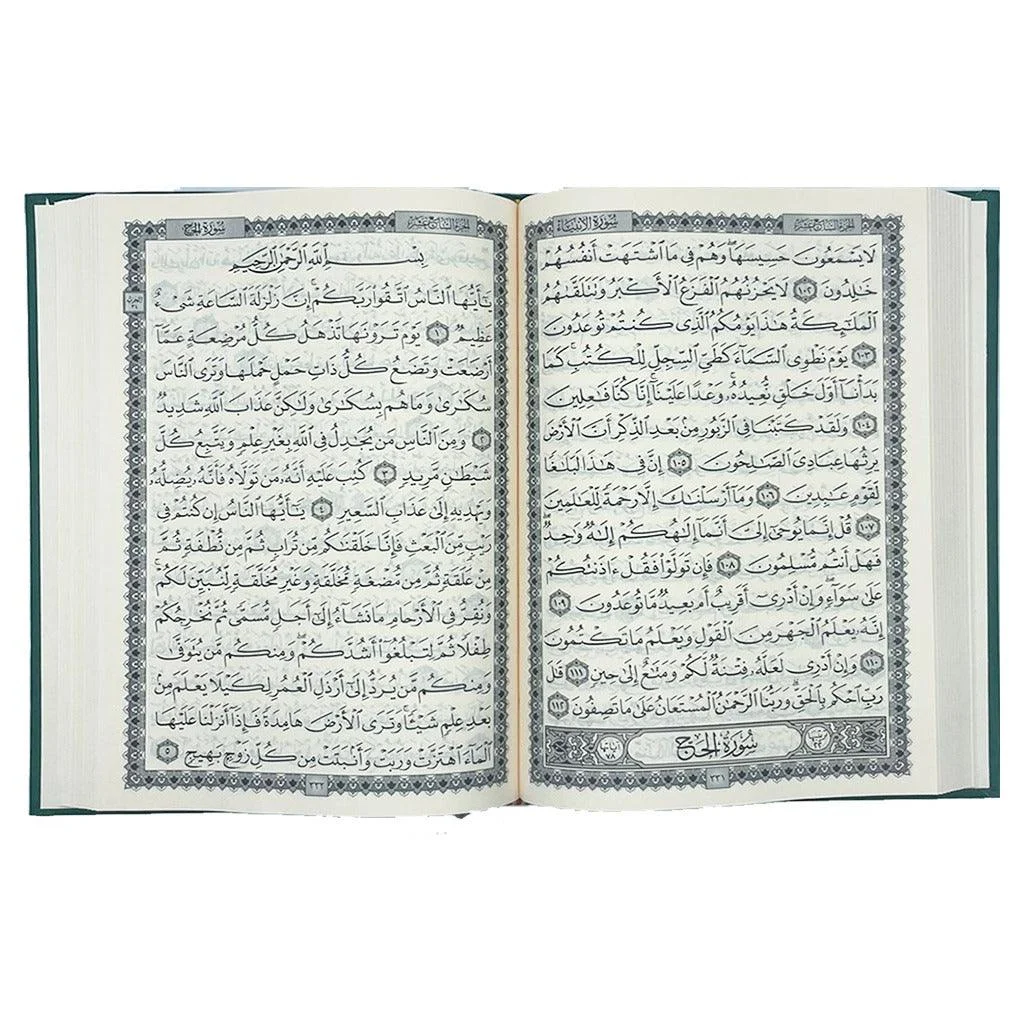 الجزء السابع عشر
سورة الأنبياء
لَا يَسْمَعُونَ حَسِيسَهَا ۖ وَهُمْ فِي مَا ٱشْتَهَتْ أَنفُسُهُمْ
خَٰلِدُونَ ١٠٢ لَا يَحْزُنُهُمُ ٱلْفَزَعُ ٱلْأَكْبَرُ وَتَتَلَقَّىٰهُمُ
ٱلْمَلَٰٓئِكَةُ هَٰذَا يَوْمُكُمُ ٱلَّذِي كُنتُمْ تُوعَدُونَ
١٠٣ يَوْمَ نَطْوِي ٱلسَّمَآءَ كَطَيِّ ٱلسِّجِلِّ لِلْكُتُبِ ۚ كَمَا
بَدَأْنَآ أَوَّلَ خَلْقٍ نُّعِيدُهُۥ ۚ وَعْدًا عَلَيْنَآ ۚ إِنَّا كُنَّا فَٰعِلِينَ
١٠٤ وَلَقَدْ كَتَبْنَا فِي ٱلزَّبُورِ مِنۢ بَعْدِ ٱلذِّكْرِ أَنَّ ٱلْأَرْضَ
يَرِثُهَا عِبَادِيَ ٱلصَّٰلِحُونَ ١٠٥ إِنَّ فِي هَٰذَا لَبَلَٰغًا
لِّقَوْمٍ عَٰبِدِينَ ١٠٦ وَمَآ أَرْسَلْنَٰكَ إِلَّا رَحْمَةً لِّلْعَٰلَمِينَ
١٠٧ قُلْ إِنَّمَا يُوحَىٰٓ إِلَيَّ أَنَّمَآ إِلَٰهُكُمْ إِلَٰهٌ وَٰحِدٌ ۖ
فَهَلْ أَنتُم مُّسْلِمُونَ ١٠٨ فَإِن تَوَلَّوْا۟ فَقُلْ ءَاذَنتُكُمْ
عَلَىٰ سَوَآءٍ ۖ وَإِنْ أَدْرِيٓ أَقَرِيبٌ أَم بَعِيدٌ مَّا تُوعَدُونَ ١٠٩
إِنَّهُۥ يَعْلَمُ ٱلْجَهْرَ مِنَ ٱلْقَوْلِ وَيَعْلَمُ مَا تَكْتُمُونَ
١١٠ وَإِنْ أَدْرِي لَعَلَّهُۥ فِتْنَةٌ لَّكُمْ وَمَتَٰعٌ إِلَىٰ حِينٍ ١١١ قَٰلَ
رَبِّ ٱحْكُم بِٱلْحَقِّ ۗ وَرَبُّنَا ٱلرَّحْمَٰنُ ٱلْمُسْتَعَانُ عَلَىٰ مَا تَصِفُونَ ١١٢
سُورَةُ الحَجّ
آياتها ٧٨
٣٣١
الجزء السابع عشر
سورة الحج
بِسْمِ ٱللَّهِ ٱلرَّحْمَٰنِ ٱلرَّحِيمِ
يَٰٓأَيُّهَا ٱلنَّاسُ ٱتَّقُوا۟ رَبَّكُمْ ۚ إِنَّ زَلْزَلَةَ ٱلسَّاعَةِ شَيْءٌ
عَظِيمٌ ١ يَوْمَ تَرَوْنَهَا تَذْهَلُ كُلُّ مُرْضِعَةٍ عَمَّآ
أَرْضَعَتْ وَتَضَعُ كُلُّ ذَاتِ حَمْلٍ حَمْلَهَا وَتَرَى ٱلنَّاسَ
سُكَٰرَىٰ وَمَا هُم بِسُكَٰرَىٰ وَلَٰكِنَّ عَذَابَ ٱللَّهِ شَدِيدٌ
٢ وَمِنَ ٱلنَّاسِ مَن يُجَٰدِلُ فِي ٱللَّهِ بِغَيْرِ عِلْمٍ وَيَتَّبِعُ كُلَّ
شَيْطَٰنٍ مَّرِيدٍ ٣ كُتِبَ عَلَيْهِ أَنَّهُۥ مَن تَوَلَّاهُ فَأَنَّهُۥ يُضِلُّهُۥ
وَيَهْدِيهِ إِلَىٰ عَذَابِ ٱلسَّعِيرِ ٤ يَٰٓأَيُّهَا ٱلنَّاسُ إِن كُنتُمْ فِي
رَيْبٍ مِّنَ ٱلْبَعْثِ فَإِنَّا خَلَقْنَٰكُم مِّن تُرَابٍ ثُمَّ مِن نُّطْفَةٍ ثُمَّ
مِنْ عَلَقَةٍ ثُمَّ مِن مُّضْغَةٍ مُّخَلَّقَةٍ وَغَيْرِ مُخَلَّقَةٍ لِّنُبَيِّنَ لَكُمْ ۚ
وَنُقِرُّ فِي ٱلْأَرْحَامِ مَا نَشَآءُ إِلَىٰٓ أَجَلٍ مُّسَمًّى ثُمَّ نُخْرِجُكُمْ
طِفْلًا ثُمَّ لِتَبْلُغُوٓا۟ أَشُدَّكُمْ ۖ وَمِنكُم مَّن يُتَوَفَّىٰ
وَمِنكُم مَّن يُرَدُّ إِلَىٰٓ أَرْذَلِ ٱلْعُمُرِ لِكَيْلَا يَعْلَمَ مِنۢ
بَعْدِ عِلْمٍ شَيْـًٔا ۚ وَتَرَى ٱلْأَرْضَ هَامِدَةً فَإِذَآ أَنزَلْنَا عَلَيْهَا
ٱلْمَآءَ ٱهْتَزَّتْ وَرَبَتْ وَأَنۢبَتَتْ مِن كُلِّ زَوْجٍۭ بَهِيجٍ ٥
٣٣٢